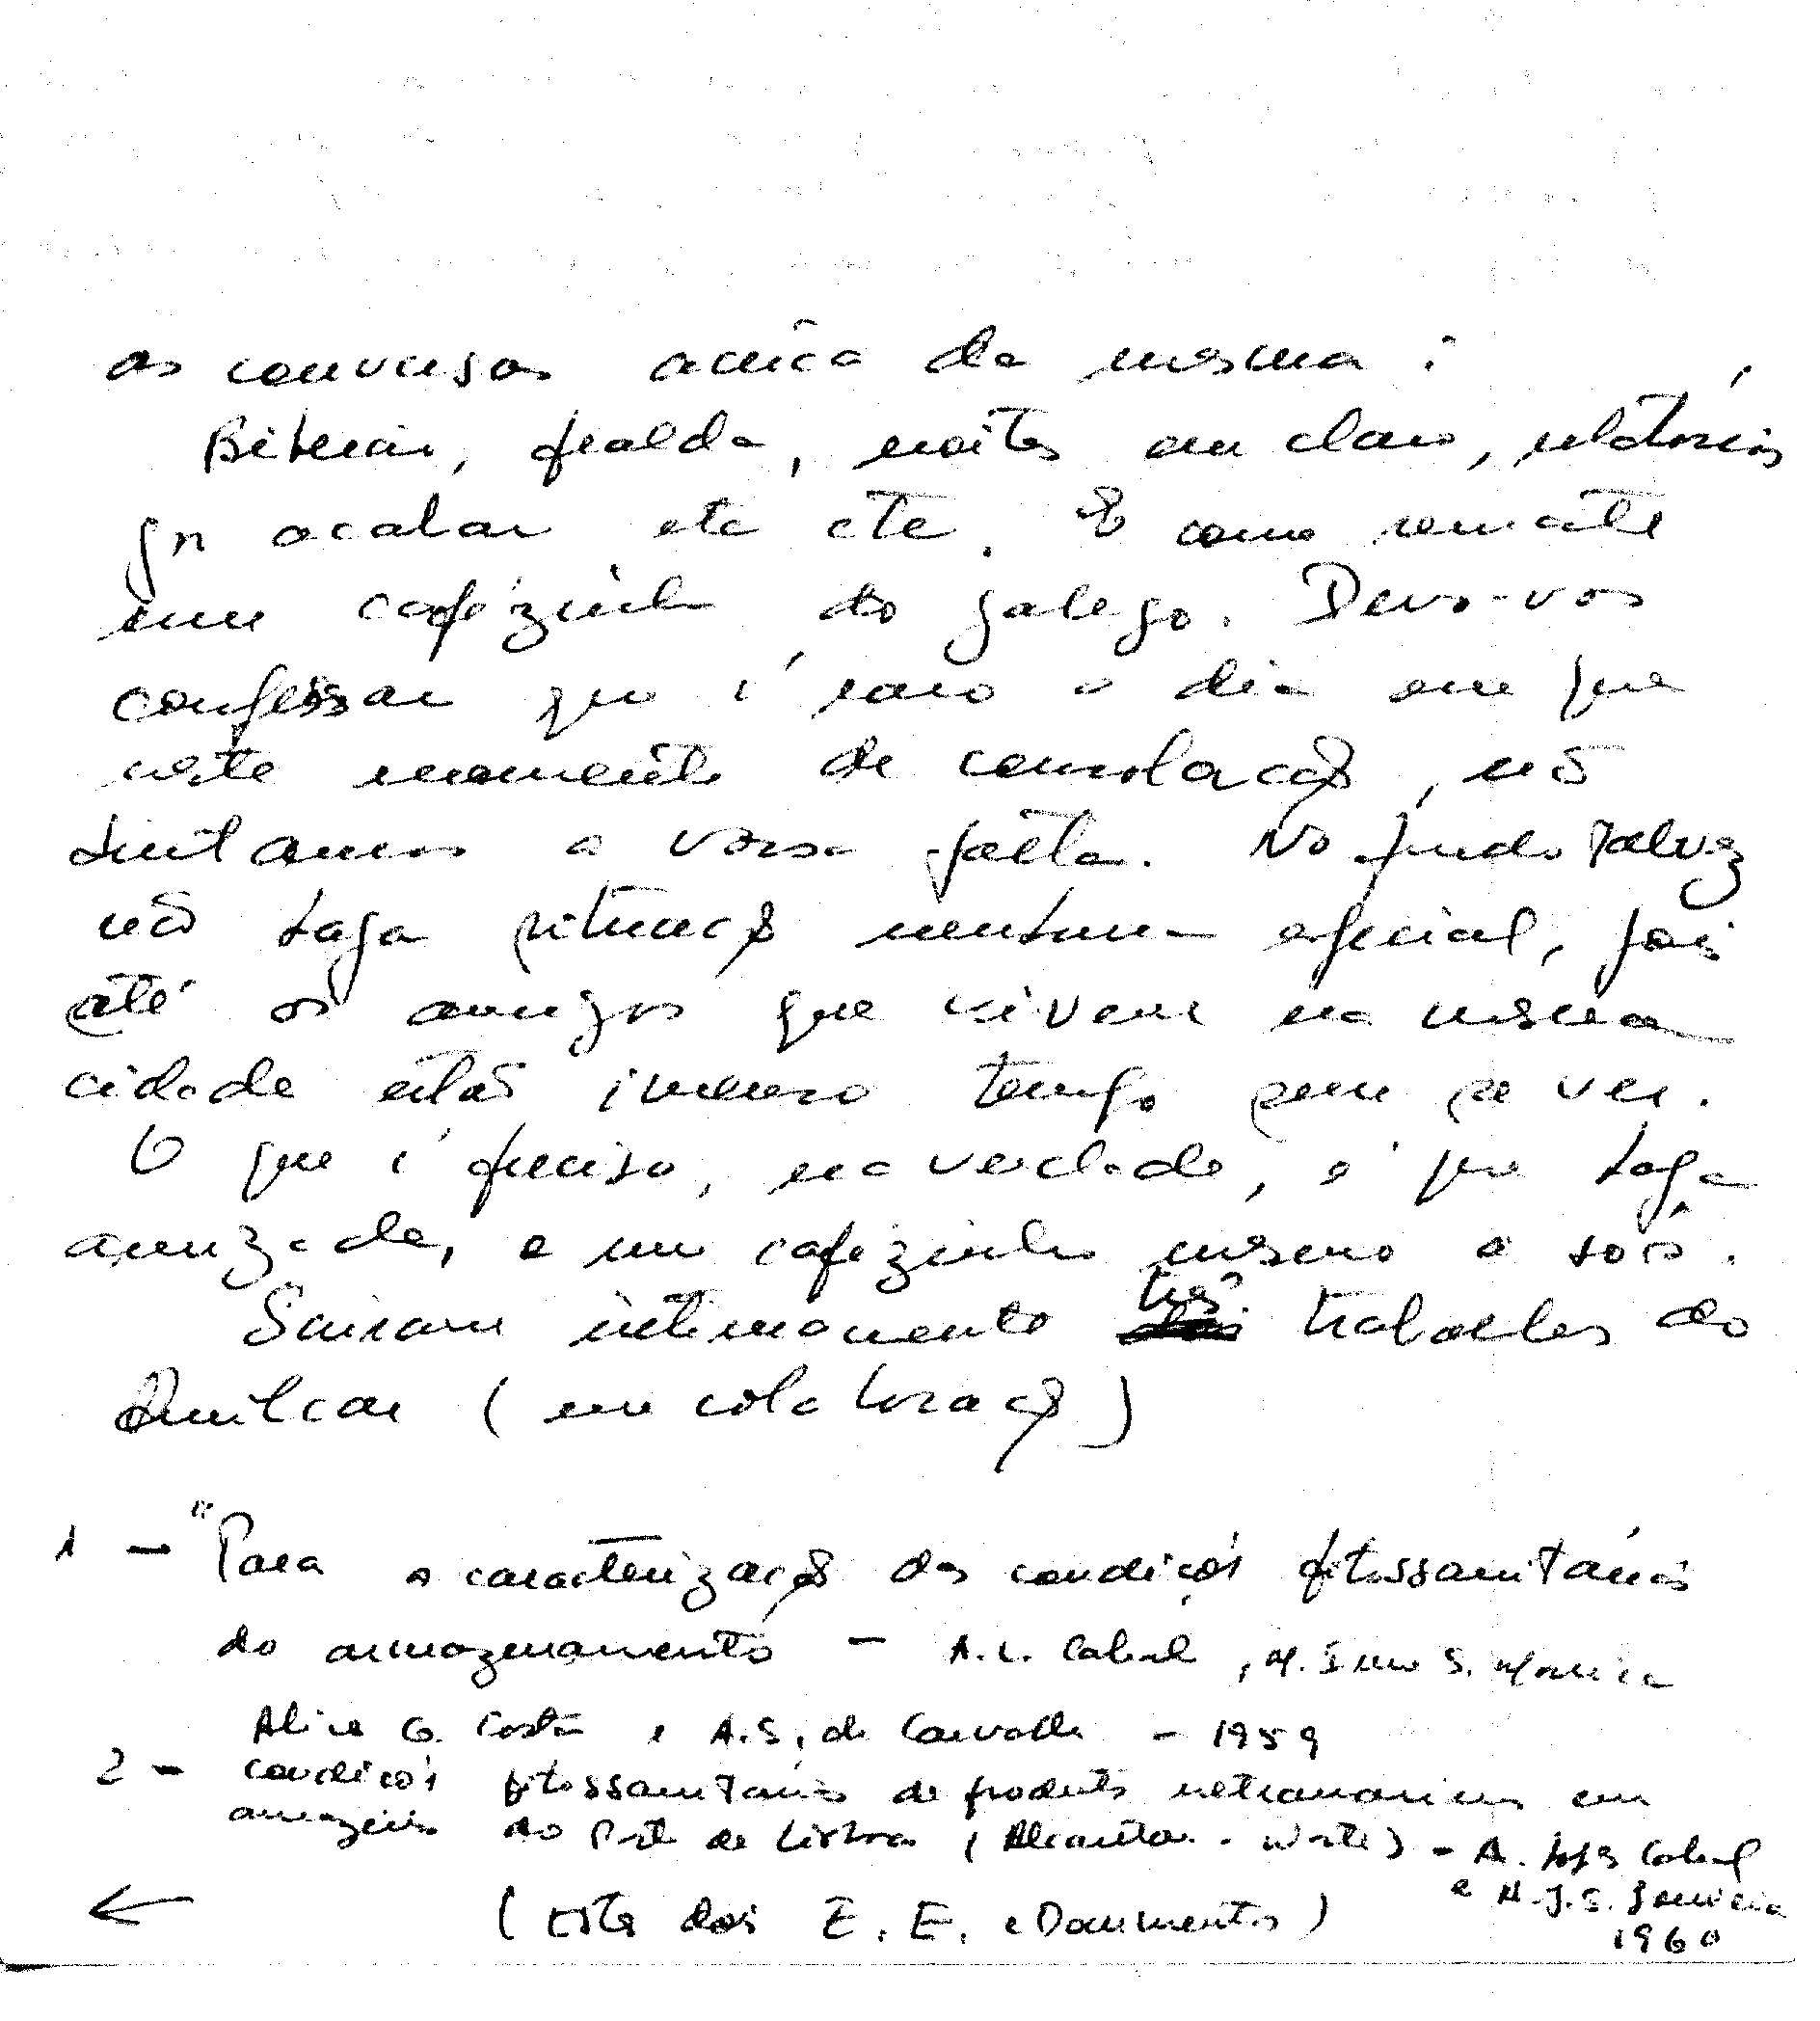 as conversas acerca da mesma:
Biberon, fralda, noites em claro, relatórios
por acabar etc etc. E como remate
um cafézinho do galego. Devo-vos
confessar que é raro o dia em que
neste momento de consolação, não
sintamos a vossa falta. No fundo talvez
não haja situação nenhuma especial, pois
até os amigos que vivem na mesma
cidade estão imenso tempo sem se ver.
O que é preciso, na verdade, é que haja
amizade, e um cafezinho mesmo a sós.
Sairam ultimamente três trabalhos do
Amilcar (em colaboração)
1 - "Para a caracterização das condições fitossanitárias
do armazenamento - A. L. Cabral, M.
Alice G. Costa e A. S. de Carvalho - 1959
2 - Condições fitossanitárias de produtos ultramarinos em
armazens do Porto de Lisboa (Alcantara - Norte) - A. Lopes Cabral
e
1960
(Estes dois E. E. e Documentos)
←